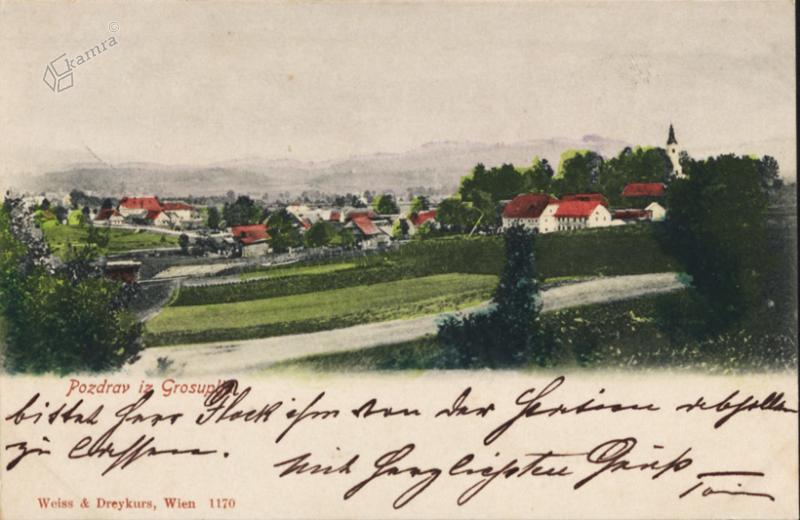 kamra
Pozdrav iz Grosuplj
bittet Herr Flock ihm von der Station abholen
zu lassen.
Mit herzlichsten Gruß
Weiss & Dreykurs, Wien 1170